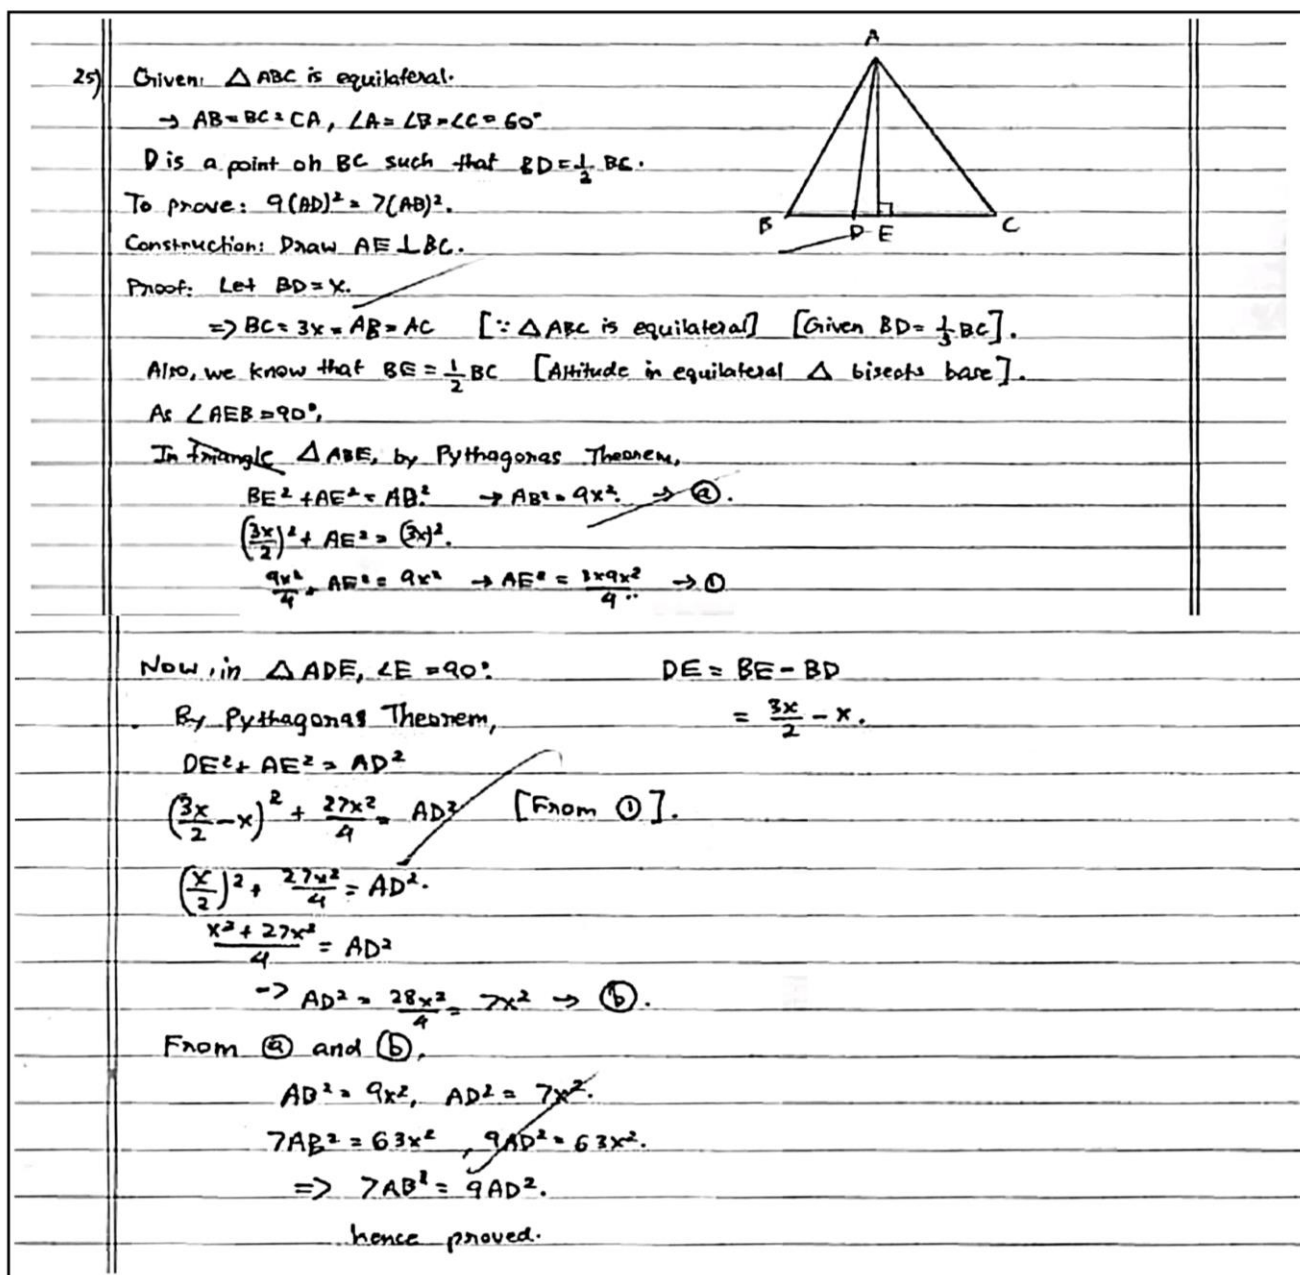 A
25) Given: △ ABC is equilateral.
→ AB = BC = CA, ∠A = ∠B = ∠C = 60°
D is a point on BC such that BD = 1/2 BC.
B D E C
To prove: 9(AD)² = 7(AB)².
Construction: Draw AE ⊥ BC.
Proof: Let BD = x.
=> BC = 3x = AB = AC [∵ △ ABC is equilateral] [Given BD = 1/3 BC].
Also, we know that BE = 1/2 BC [Altitude in equilateral △ bisects base].
As ∠AEB = 90°,
In triangle △ ABE, by Pythagoras Theorem,
BE² + AE² = AB². → AB² = 9x². → ⓐ.
(3x/2)² + AE² = (3x)².
9x²/4 + AE² = 9x² → AE² = 3x9x²/4 → ①
Now, in △ ADE, ∠E = 90°. DE = BE - BD
By Pythagoras Theorem, = 3x/2 - x.
DE² + AE² = AD²
(3x/2 - x)² + 27x²/4 = AD² [From ①].
(x/2)² + 27x²/4 = AD².
x² + 27x²/4 = AD²
-> AD² = 28x²/4 = 7x² → ⓑ.
From ⓐ and ⓑ,
AB² = 9x², AD² = 7x².
7AB² = 63x², 9AD² = 63x².
=> 7AB² = 9AD².
hence proved.